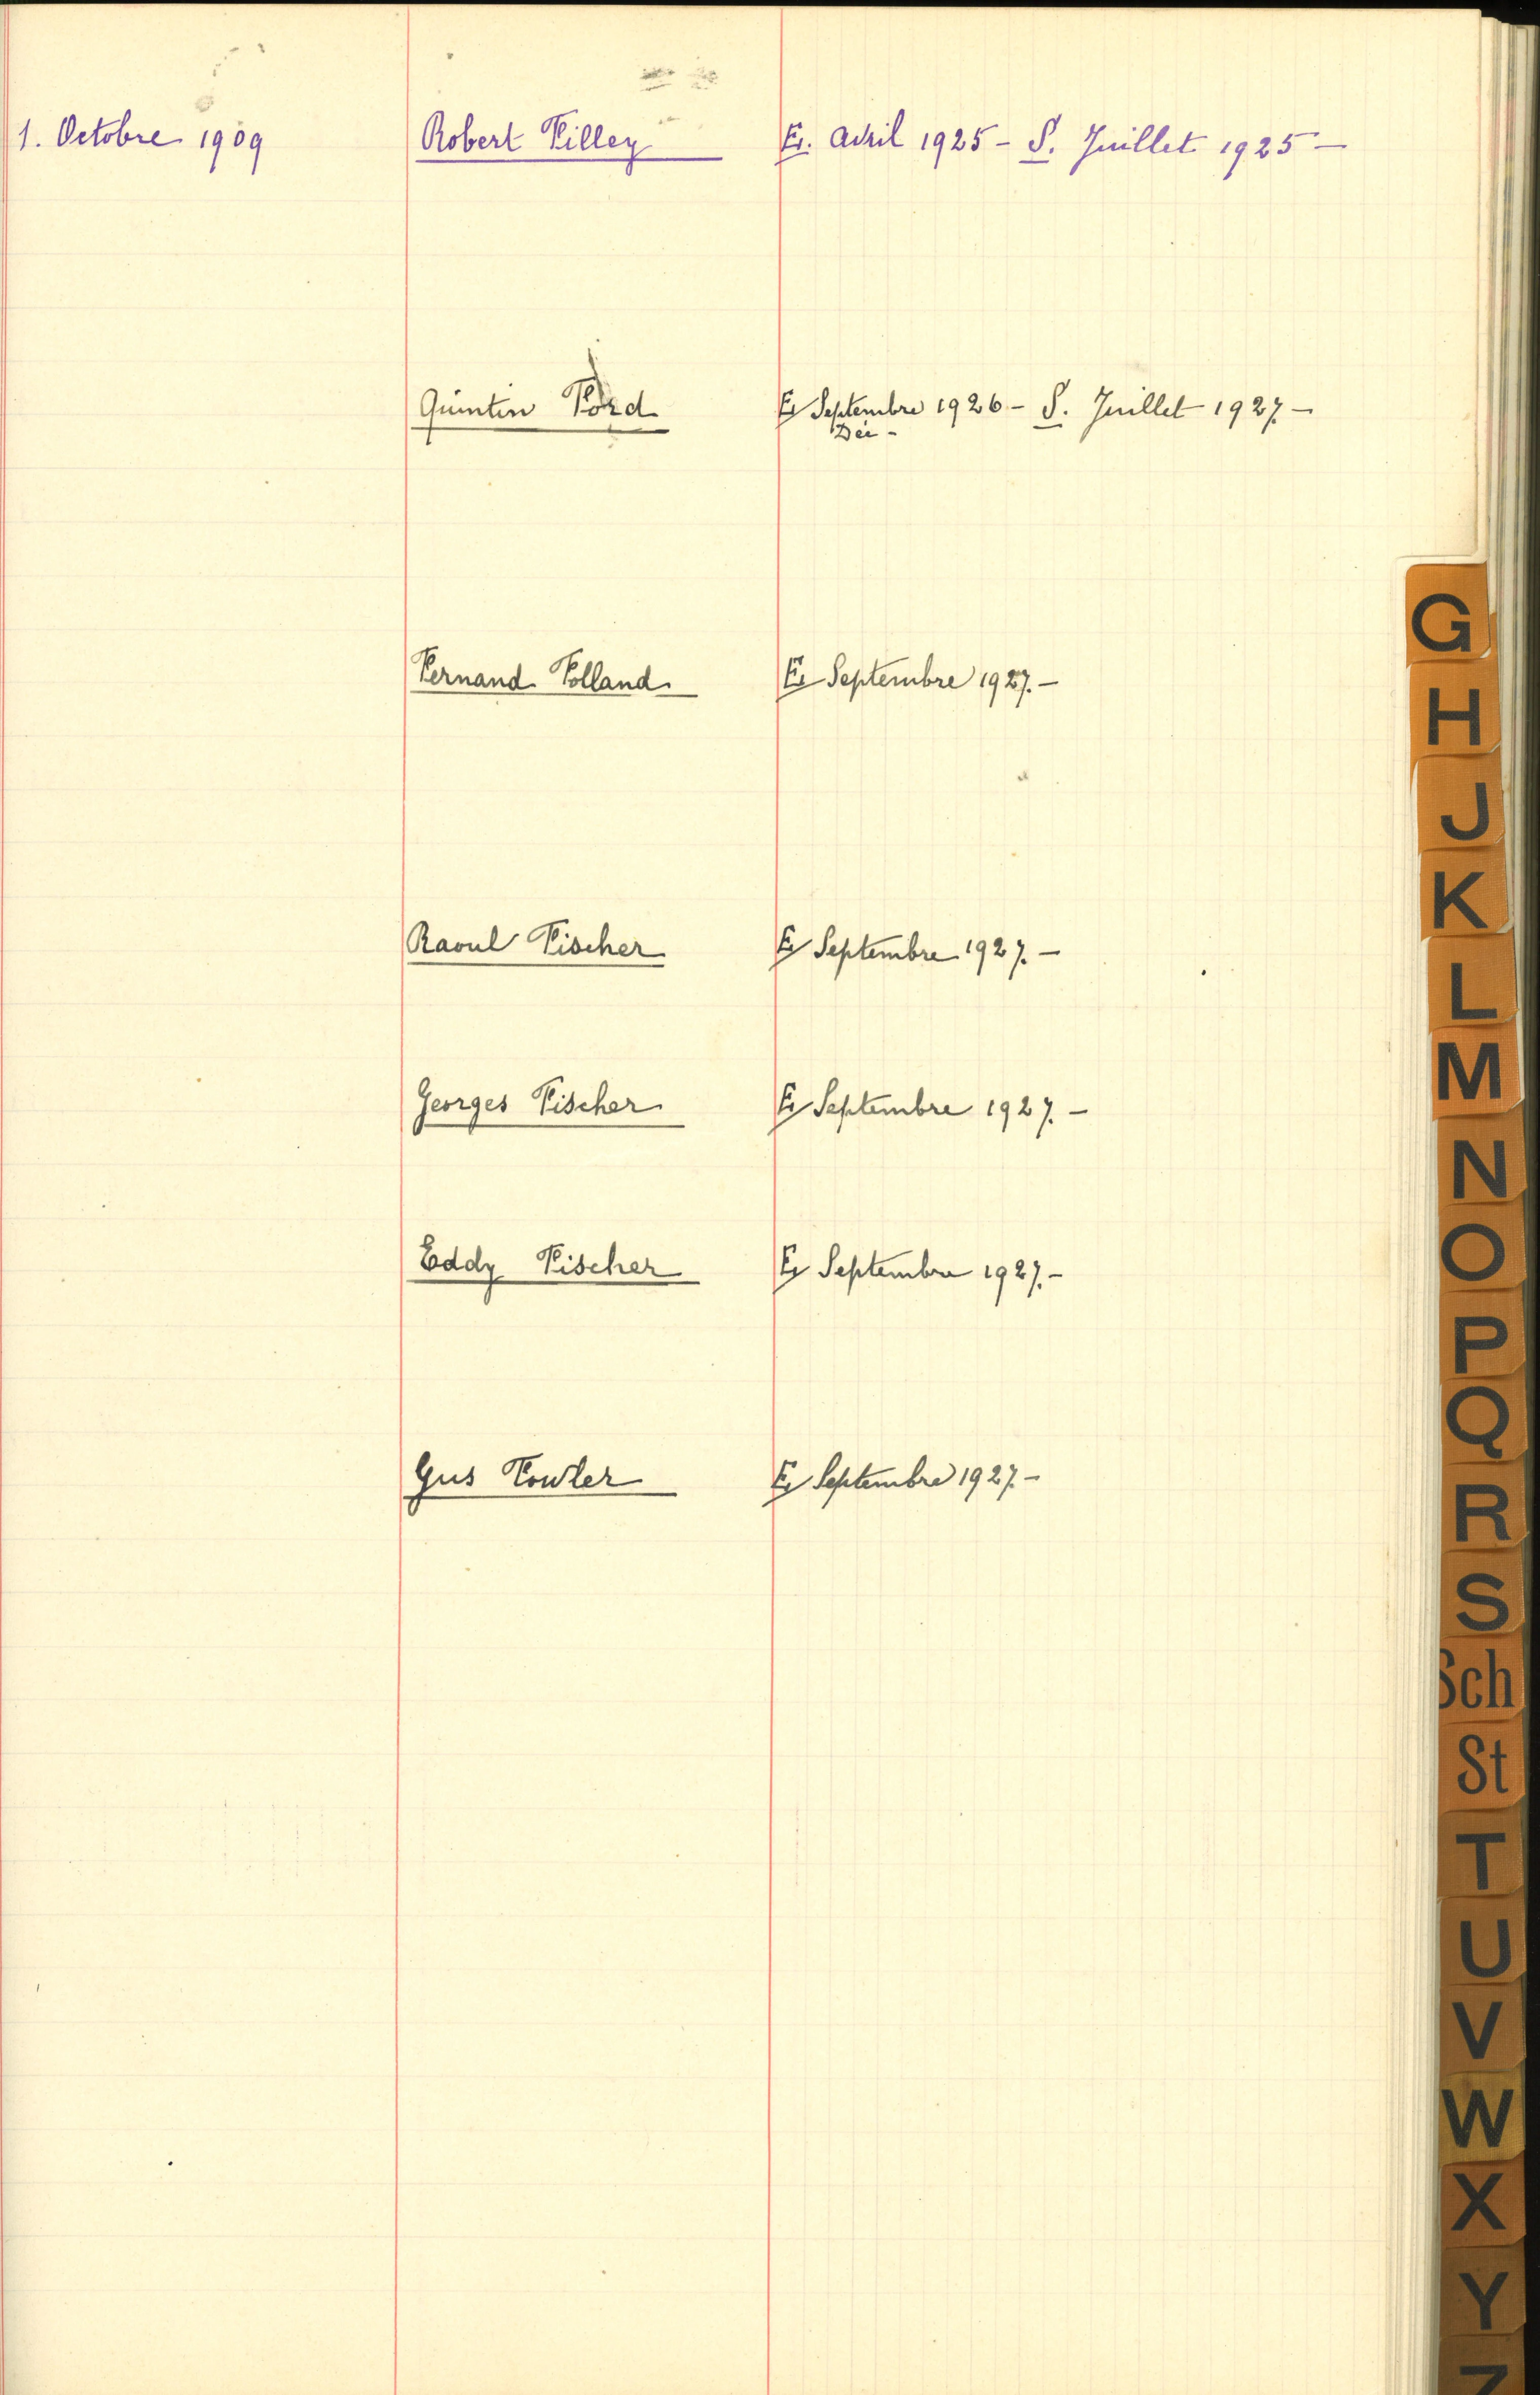 1. Octobre 1909 Robert Filley E. Avril 1925 - S. Juillet 1925 -
Quintin Ford E. Septembre 1926 - S. Juillet 1927. -
Fernand Folland E. Septembre 1927. -
Raoul Fischer E. Septembre 1927. -
Georges Fischer E. Septembre 1927. -
Eddy Fischer E. Septembre 1927. -
Gus Fowler E. Septembre 1927. -
G
H
J
K
L
M
N
O
P
Q
R
S
Sch
St
T
U
V
W
X
Y
Z